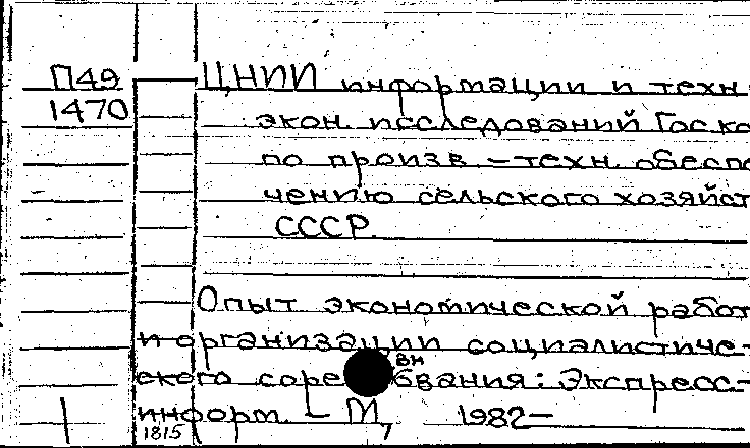 П49 ЦНИИ информации и техн
1470 экон. исследований Госко
по произв.-техн. обеспе
чению сельского хозяйст
СССР.
Опыт экономической работ
и организации социалистиче-
ского соре вн ования: Экспресс-
информ. – М, 1982–
1815